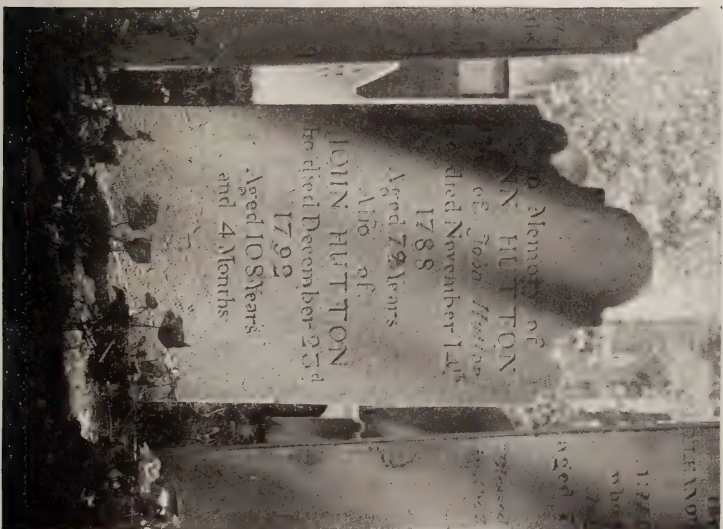 In Memory of
ANN HUTTON
of John Hutton
died November 14th
1788
Aged 79 Years
Also of
JOHN HUTTON
he died December 23d
1792
Aged 108 Years
and 4 Months
aged